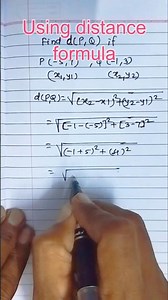 Using distance
formula
Find d(P,Q) if
P(-5, 7), Q(-1, 3)
(x₁,y₁) (x₂,y₂)
d(P,Q) = √(x₂-x₁)²+(y₂-y₁)²
= √[-1-(-5)]²+[3-7]²
= √(-1+5)²+(4)²
= √